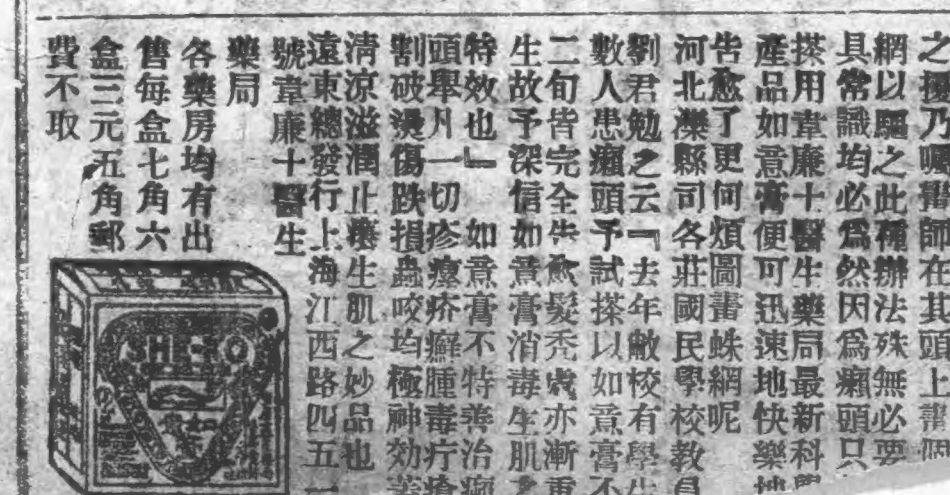 之擾乃囑畫師在其頭上畫個
網以驅之此種辦法殊無必要
具常識均必爲然因爲癩頭只
搽用韋廉士醫生藥局最新科學
產品如意膏便可迅速地快樂地
告愈了更何煩圖畫蛛網呢
河北灤縣司各莊國民學校教員
劉君勉之云『去年敝校有學生
數人患癩頭予試搽以如意膏不
二旬皆完全告愈髮禿處亦漸重
生故予深信如意膏消毒生肌之
特效也』如意膏不特善治癩
頭舉凡一切疹瘰疥癬腫毒疔瘡
割破燙傷跌損蟲咬均極神効蓋
清涼滋潤止癢生肌之妙品也
遠東總發行上海江西路四五一
號韋廉士醫生
藥局
各藥房均有出
售每盒七角六
盒三元五角郵
費不取
SHE-KO
如意膏